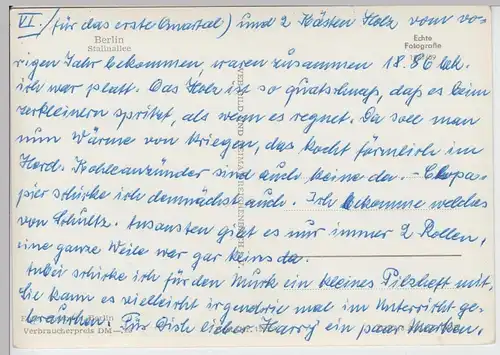 VI. (für das erste Quartal) und 2 Kästen Holz vom vo-
Berlin
Stalinallee
Echte
Fotografie
rigen Jahr bekommen, waren zusammen 18.86 Mk.
ich war platt. Das Holz ist so quatschnaß, daß es beim
zerkleinern spritzt, als wenn es regnet. Da soll man
nun Wärme von kriegen, das kocht förmlich im
Herd. Kohleanzünder sind auch keine da. - Clopa-
pier schicke ich demnächst auch. Ich bekomme welches
von Schultz. Ansonsten gibt es nur immer 2 Rollen,
eine ganze Weile war gar keins da.
Anbei schicke ich für den Murk ein kleines Pilzheft mit,
sie kann es vielleicht irgendwie mal im Unterricht ge-
brauchen. Für Dich lieber Harry ein paar Marken.
Berlin
Verbraucherpreis DM